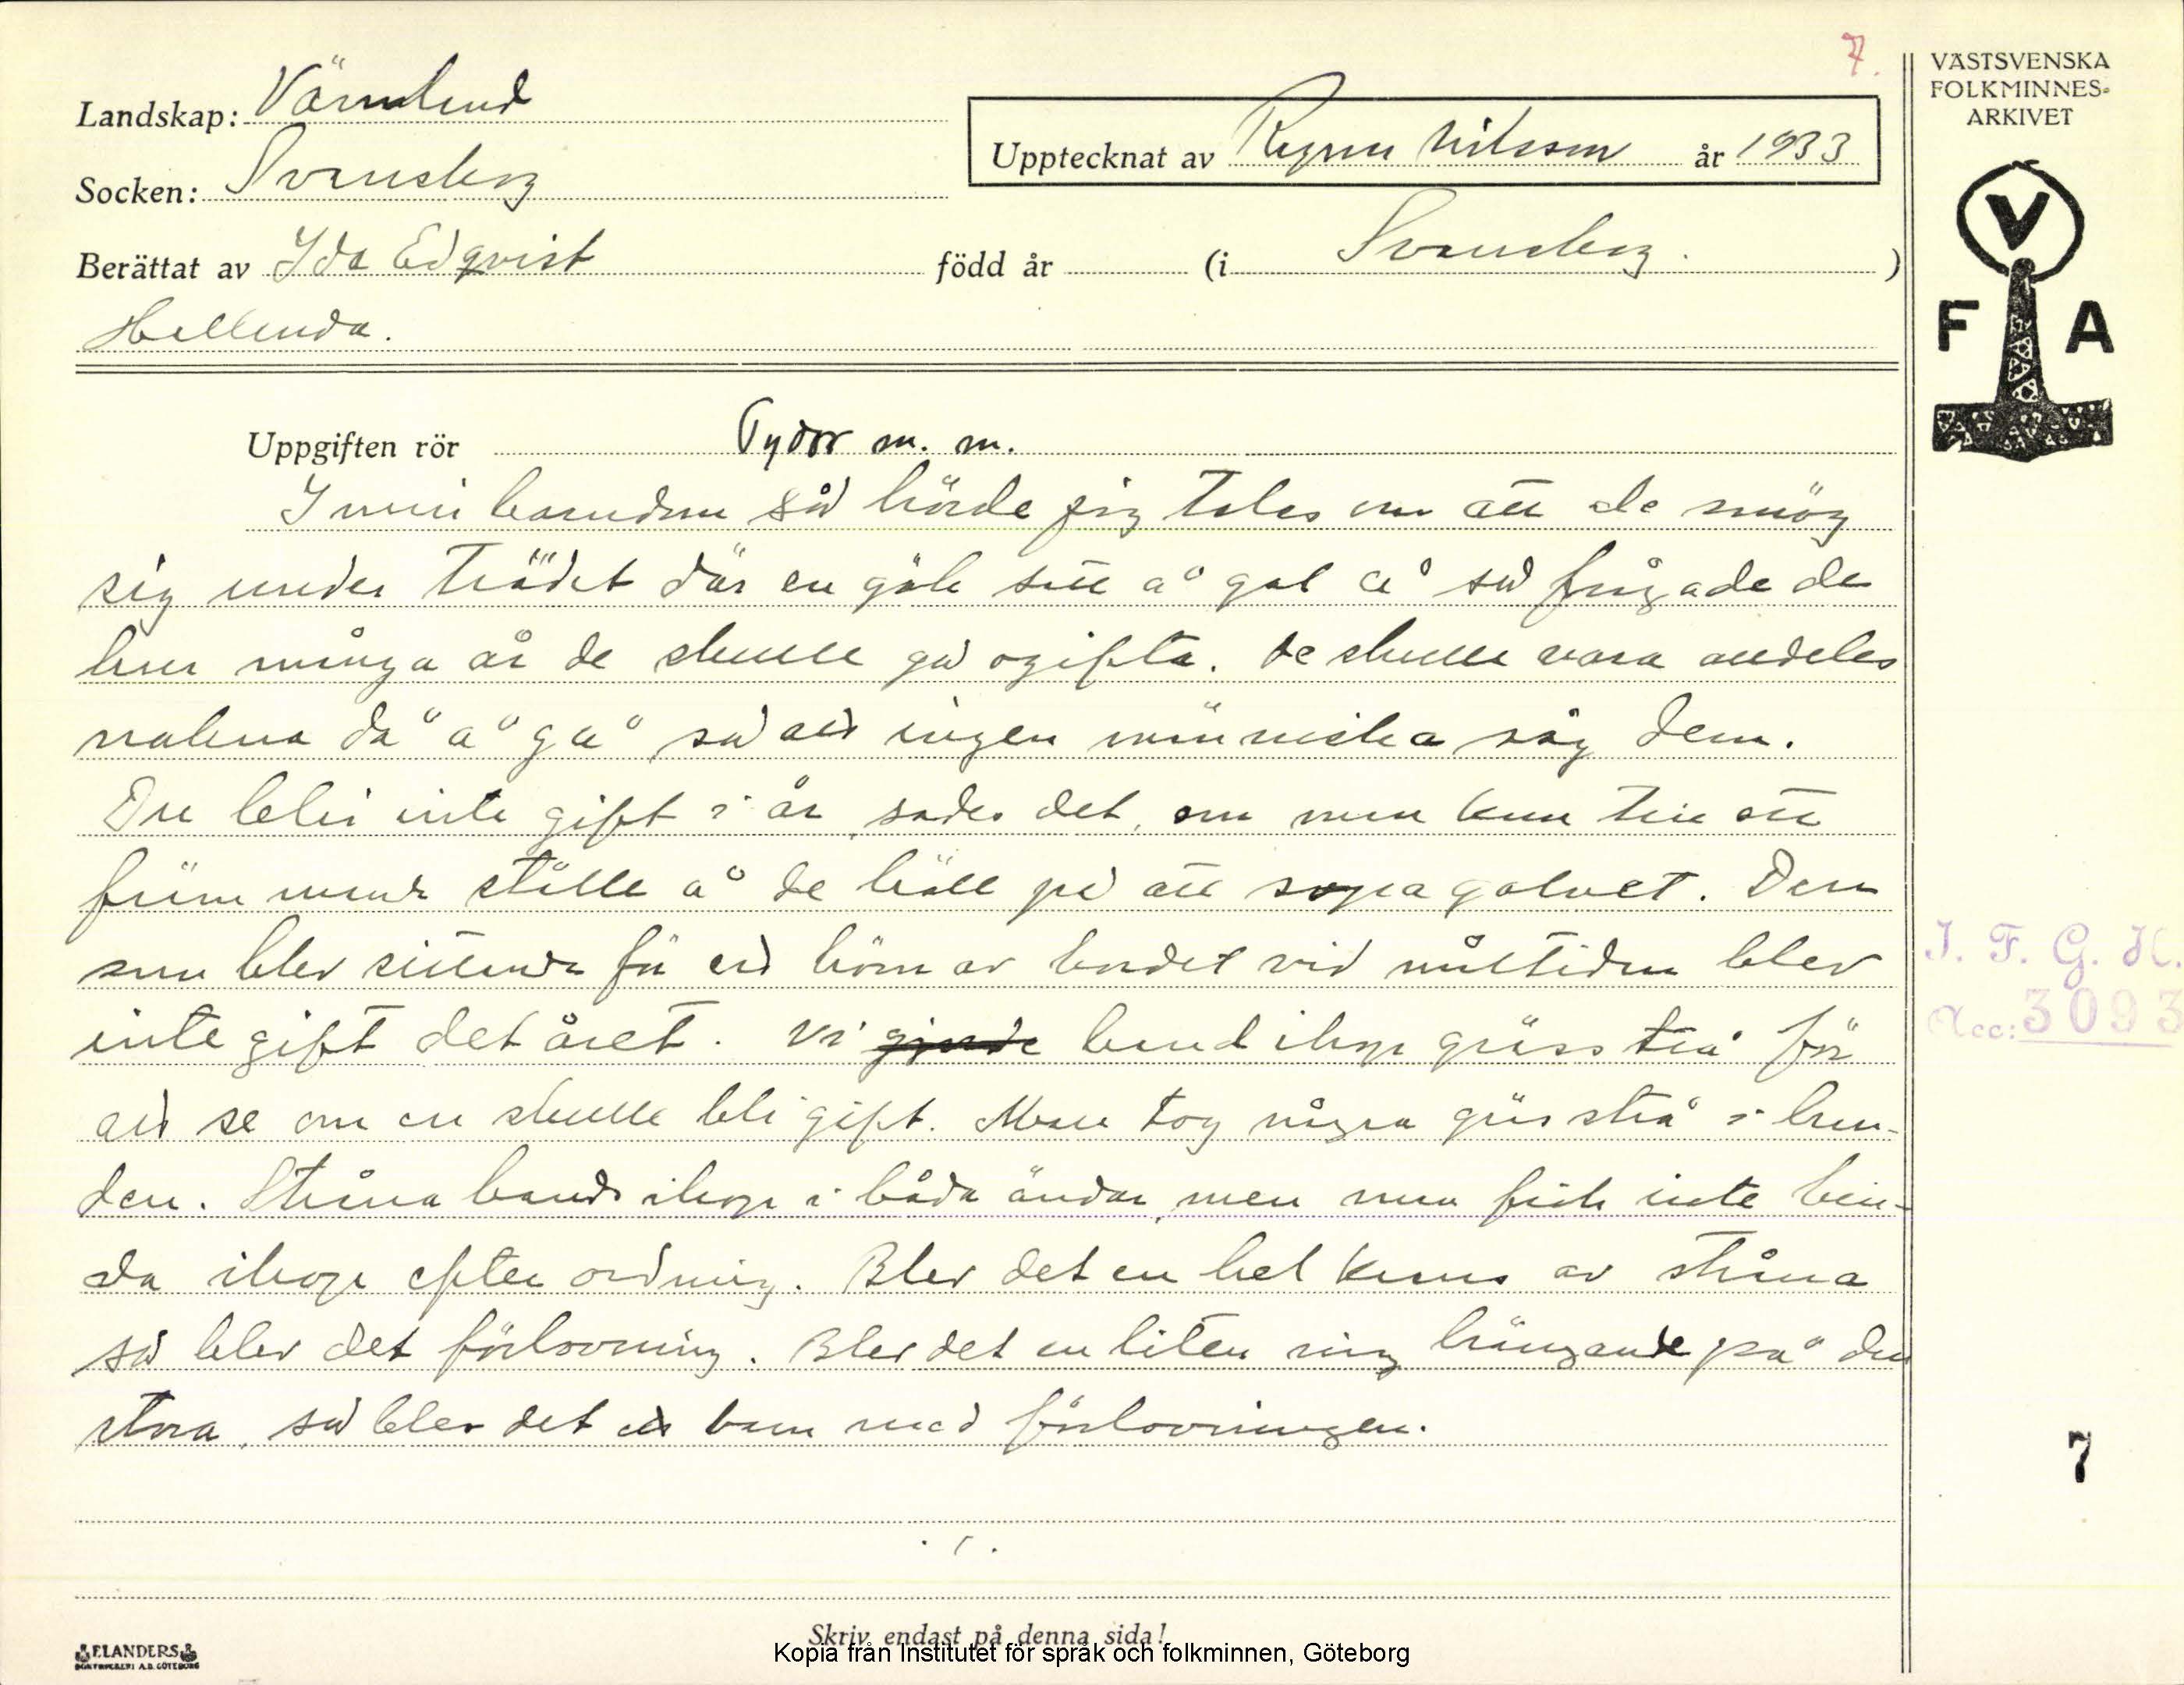 7.
VÄSTSVENSKA
FOLKMINNES-
ARKIVET
Landskap: Värmland
Upptecknat av Ragnar Nilsson år 1933
Socken: Svanskog
Berättat av Ida Edqvist född år (i Svanskog.)
V
F A
Uppgiften rör Tydor m. m.
I min barndom så hörde jag talas om att de smög
sig under trädet där en gök satt å gol å så frågade de
hur många år de skulle gå ogifta. De skulle vara alldeles
nakna då å gå så att ingen människa såg dem.
Du blir inte gift i år, sades det, om man kom till ett
främmande ställe å de höll på att sopa golvet. Den
som blev sittande för ett hörn av bordet vid måltiden blev
inte gift det året. Vi gjorde band ihop grässtrå för
att se om en skulle bli gift. Man tog några grässtrå i han-
den. Stråna bands ihop i båda ändar, men man fick inte bin-
da ihop efter ordning. Blev det en hel krans av stråna
så blev det förlovning. Blev det en liten ring hängande på den
stora, så blev det ett barn med förlovningen.
I. F. G. H.
Acc: 3093
7
./.
ELANDERS
BOKTRYCKERI A.B. GÖTEBORG
Skriv endast på denna sida!
Kopia från Institutet för språk och folkminnen, Göteborg